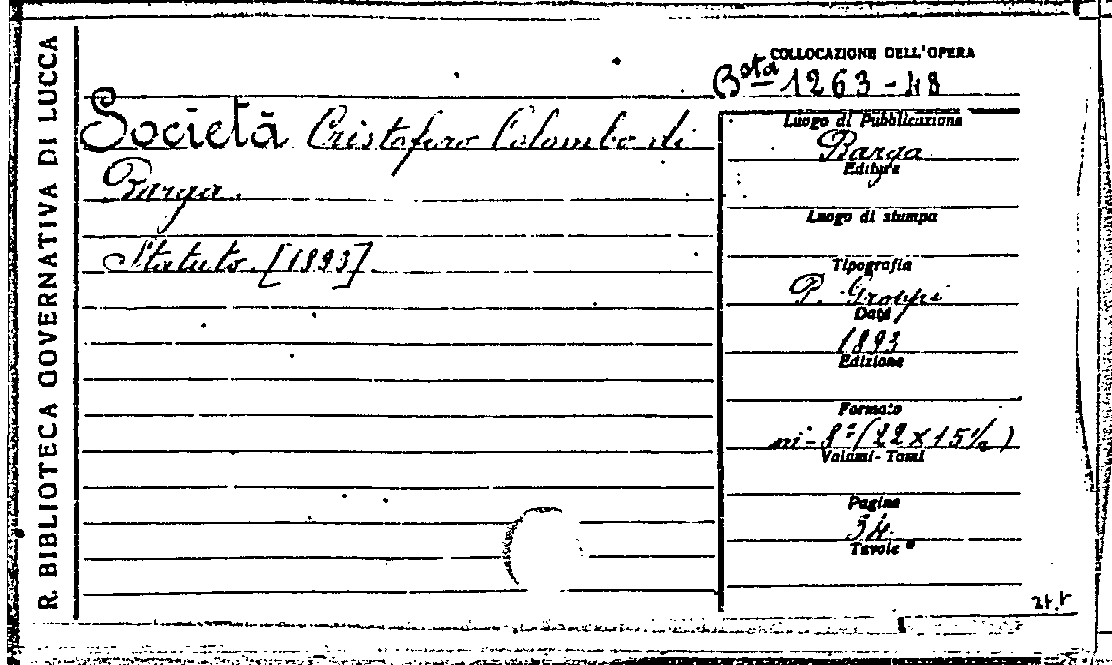 R. BIBLIOTECA GOVERNATIVA DI LUCCA
COLLOCAZIONE DELL'OPERA
Bsta 1263-48
Società Cristoforo Colombo di
Barga.
Statuto. [1893]
Luogo di Pubblicazione
Barga
Editore
Luogo di stampa
Tipografia
P. Groppi
Data
1893
Edizione
Formato
in-8º (22 x 15½)
Volumi - Tomi
Pagine
34.
Tavole